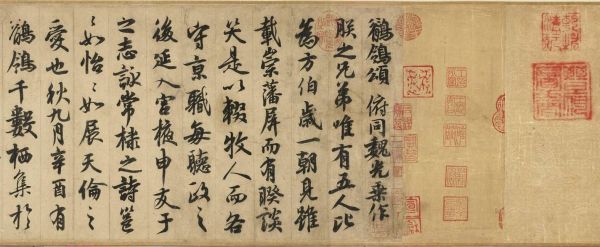 鶺鴒頌 俯同魏光乘作
朕之兄弟唯有五人比
為方伯歲一朝見雖
載崇藩屏而有睽談
笑是以輟牧人而各
守京職每聽政之
後延入宮掖申友于
之志詠常棣之詩邕
々如怡々如展天倫之
愛也秋九月辛酉有
鶺鴒千數栖集於